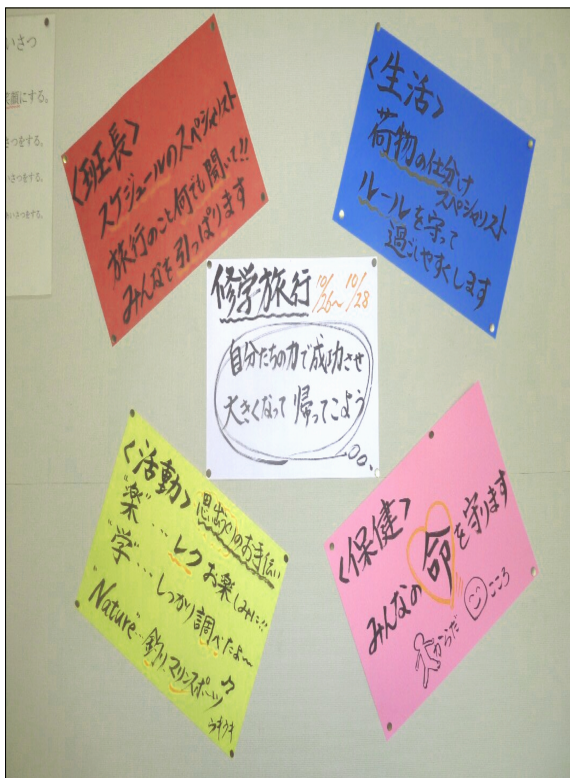 いさつ
笑顔にする。
さつをする。
いさつをする。
あいさつをする。
<班長>
スケジュールのスペシャリスト
旅行のこと何でも聞いて!!
みんなを引っぱります
<生活>
荷物の仕分け
スペシャリスト
ルールを守って
過ごしやすくします
修学旅行 10/26~10/28
自分たちの力で成功させ
大きくなって帰ってこよう
<活動> 思い出作りのお手伝い
"楽"…レクお楽しみに!!
"学"…しっかり調べたよ~
"Nature"…釣り、マリンスポーツ
うきうき
<保健>
みんなの命を守ります
からだ
こころ